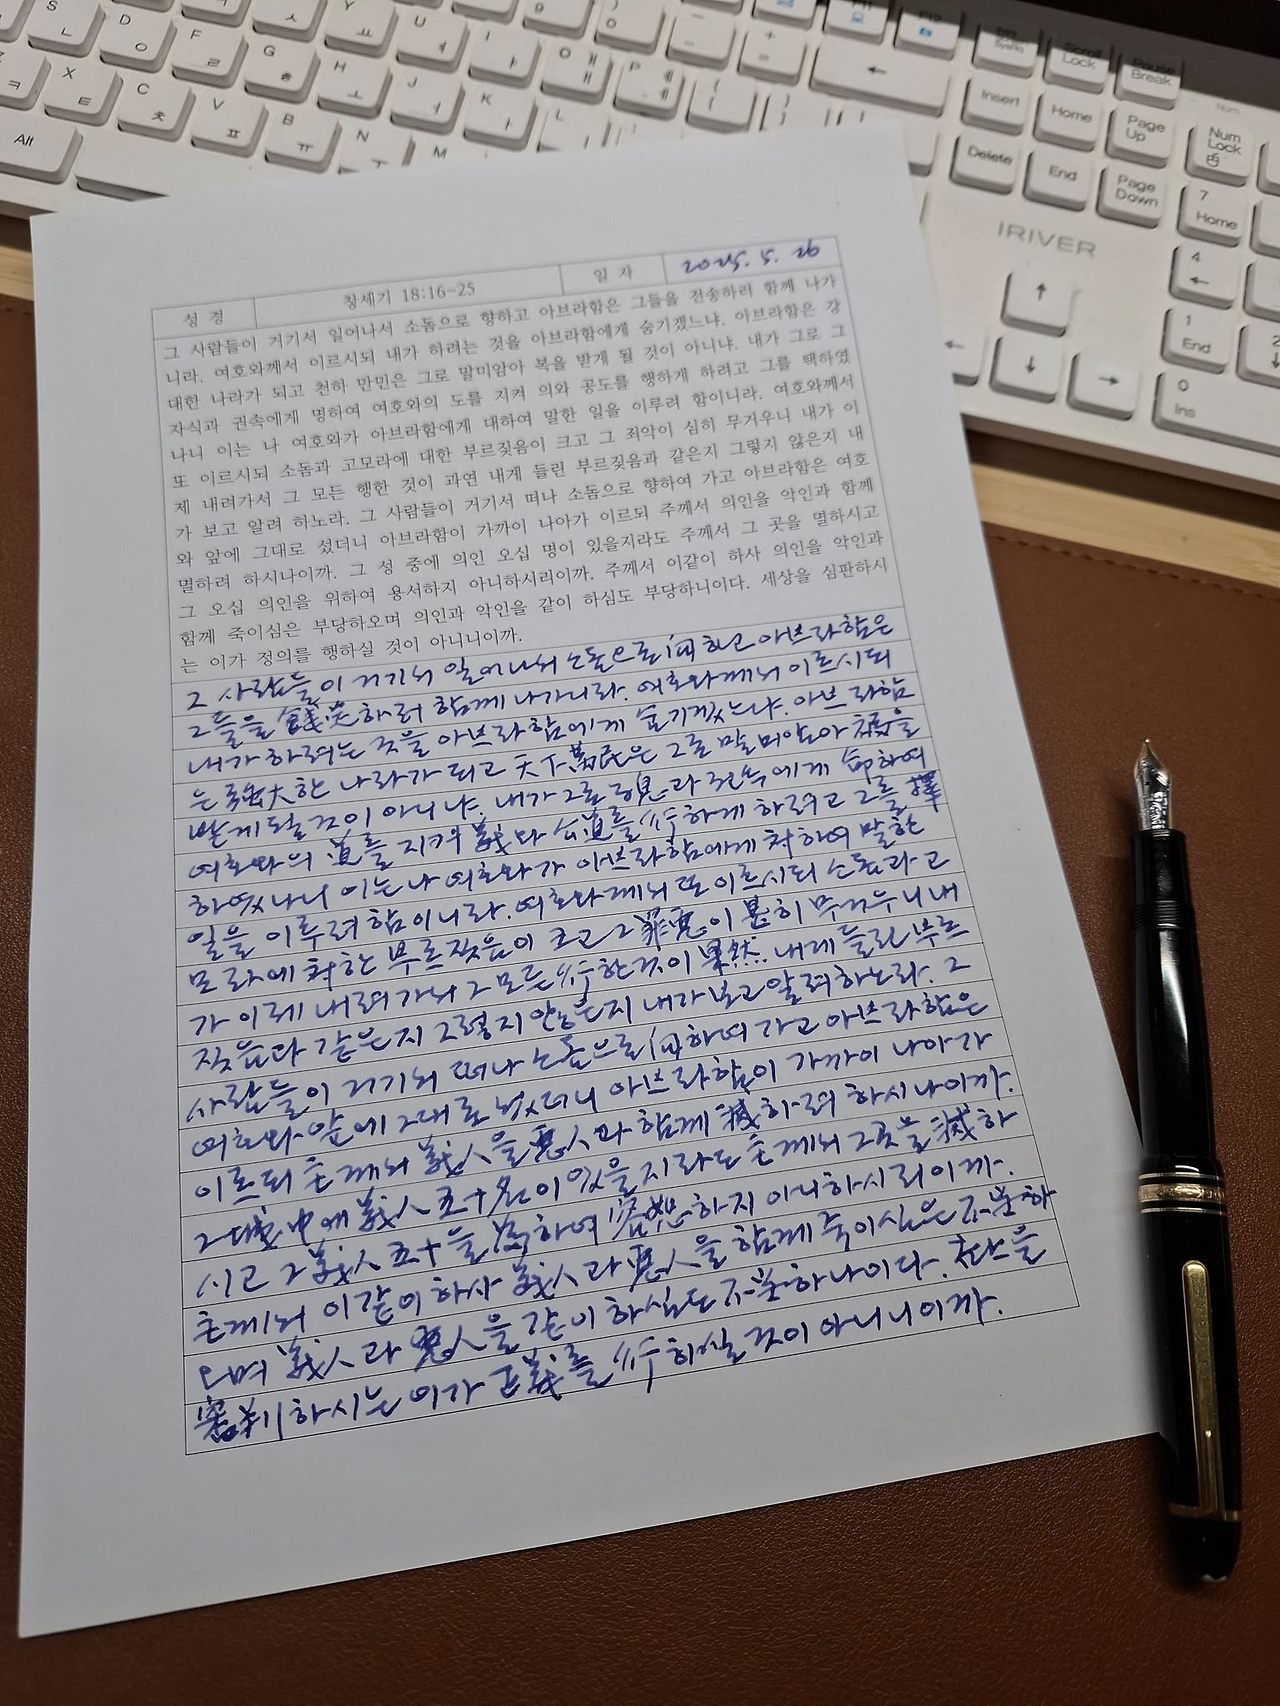 S ㄴ
D ㅇ
F ㄹ
G ㅎ
H ㅗ
J ㅓ
K ㅏ
L ㅣ
U ㅕ
I ㅑ
O ㅐ ㅒ
P ㅔ ㅖ
X ㅌ
C ㅊ
V ㅍ
B ㅠ
N ㅜ
M
Alt
Scroll Lock
Pause Break
Insert
Home
Page Up
Delete
End
Page Down
Num Lock
7 Home
4 ←
1 End
0 Ins
IRIVER
성 경 창세기 18:16-25 일 자 2025. 5. 26
그 사람들이 거기서 일어나서 소돔으로 향하고 아브라함은 그들을 전송하러 함께 나가
니라. 여호와께서 이르시되 내가 하려는 것을 아브라함에게 숨기겠느냐. 아브라함은 강
대한 나라가 되고 천하 만민은 그로 말미암아 복을 받게 될 것이 아니냐. 내가 그로 그
자식과 권속에게 명하여 여호와의 도를 지켜 의와 공도를 행하게 하려고 그를 택하였
나니 이는 나 여호와가 아브라함에게 대하여 말한 일을 이루려 함이니라. 여호와께서
또 이르시되 소돔과 고모라에 대한 부르짖음이 크고 그 죄악이 심히 무거우니 내가 이
제 내려가서 그 모든 행한 것이 과연 내게 들린 부르짖음과 같은지 그렇지 않은지 내
가 보고 알려 하노라. 그 사람들이 거기서 떠나 소돔으로 향하여 가고 아브라함은 여호
와 앞에 그대로 섰더니 아브라함이 가까이 나아가 이르되 주께서 의인을 악인과 함께
멸하려 하시나이까. 그 성 중에 의인 오십 명이 있을지라도 주께서 그 곳을 멸하시고
그 오십 의인을 위하여 용서하지 아니하시리이까. 주께서 이같이 하사 의인을 악인과
함께 죽이심은 부당하오며 의인과 악인을 같이 하심도 부당하니이다. 세상을 심판하시
는 이가 정의를 행하실 것이 아니니이까.
그 사람들이 거기서 일어나서 소돔으로 向하고 아브라함은
그들을 餞送하러 함께 나가니라. 여호와께서 이르시되
내가 하려는 것을 아브라함에게 숨기겠느냐. 아브라함
은 强大한 나라가 되고 天下 萬民은 그로 말미암아 福을
받게 될 것이 아니냐. 내가 그로 子息과 권속에게 命하여
여호와의 道를 지켜 義와 公道를 行하게 하려고 그를 擇
하였나니 이는 나 여호와가 아브라함에게 対하여 말한
일을 이루려 함이니라. 여호와께서 또 이르시되 소돔과 고
모라에 対한 부르짖음이 크고 그 罪惡이 甚히 무거우니 내
가 이제 내려가서 그 모든 行한 것이 果然 내게 들린 부르
짖음과 같은지 그렇지 않은지 내가 보고 알려 하노라. 그
사람들이 거기서 떠나 소돔으로 向하여 가고 아브라함은
여호와 앞에 그대로 섰더니 아브라함이 가까이 나아가
이르되 主께서 義人을 惡人과 함께 滅하려 하시나이까.
그 城中에 義人 五十名이 있을지라도 主께서 그 곳을 滅하
시고 그 義人 五十을 為하여 容恕하지 아니하시리이까.
主께서 이같이 하사 義人과 惡人을 함께 죽이심은 不当하
오며 義人과 惡人을 같이 하심도 不当하나이다. 世上을
審判하시는 이가 正義를 行하실 것이 아니니이까.